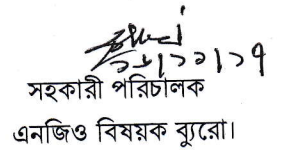 সহকারী পরিচালক
এনজিও বিষয়ক ব্যুরো।